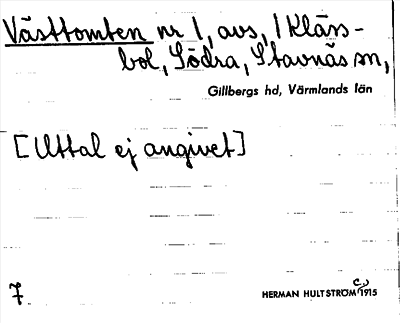 Västtomten nr 1, avs, 1 Kläss-
bol, Södra, Stavnäs sn,
Gillbergs hd, Värmlands län
[Uttal ej angivet]
7
HERMAN HULTSTRÖM c:a 1915